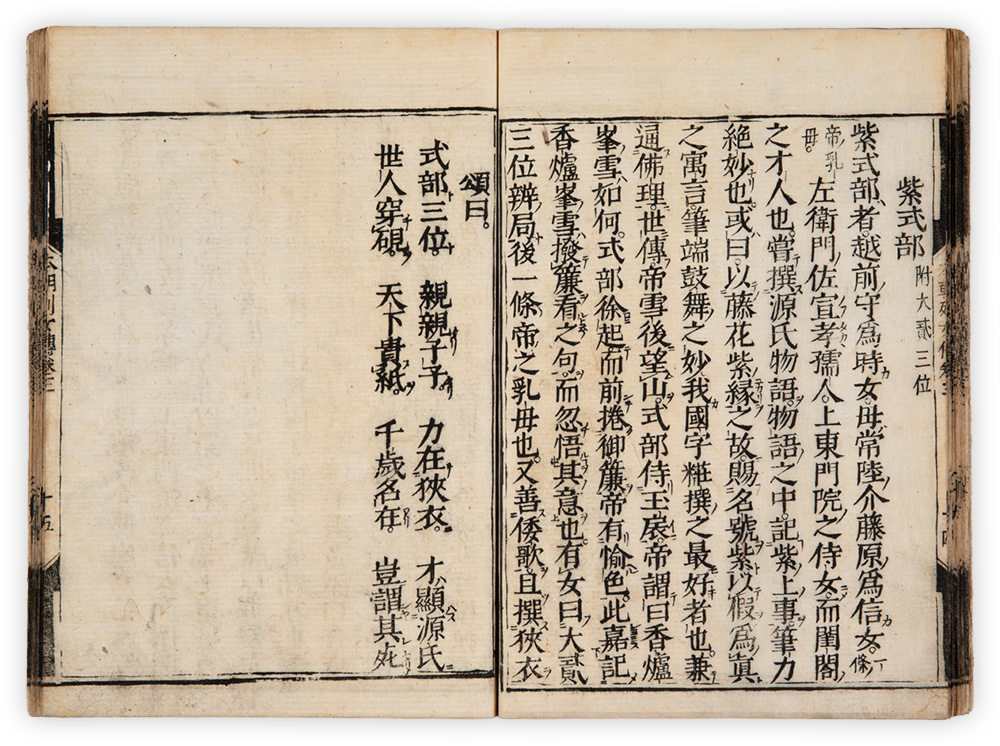 紫式部 附大貳三位
紫式部者。越前守爲時女。母常陸介藤原爲信女。一條
帝乳母。左衛門佐宣孝孺人。上東門院之侍女。而閨閤
之才人也。嘗撰源氏物語。物語之中。記紫上事。筆力
絶妙也。或曰。以藤花紫縁之故。賜名號紫。以假爲眞
之寓言。筆端鼓舞之妙。我國字糚撰之最好者也。兼
通佛理。世傳帝雪後望山。式部侍玉扆。帝謂曰。香爐
峯雪如何。式部徐起而前捲御簾。帝有愉色。此嘉記
香爐峯雪撥簾看之句。而忽悟其意也。有女曰大貳
三位辨局。後一條帝之乳母也。又善倭歌。且撰狹衣
頌曰。
式部三位。 親親子子 力在狹衣。 才顯源氏
世人穿硯。 天下貴紙。 千歳名在。 豈謂其死
本朝列女傳卷三
十五
十四